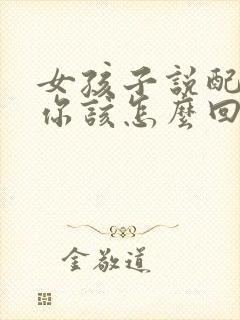 女孩子説配
你該怎麼回
金敬道